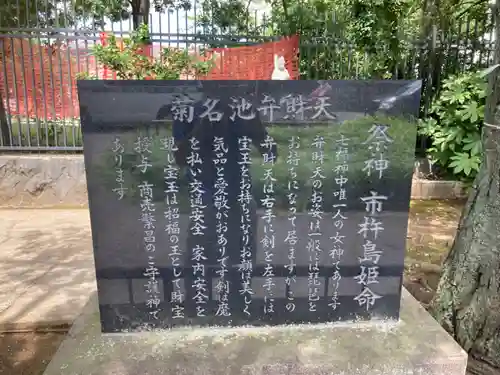 天財弁池名菊
祭神 市杵島姫命
七福神中唯一人の女神であり
弁財天のお姿は一般には琵琶を
お持ちになって居ますがこの
弁財天は右手に剣を左手には
宝玉をお持ちになりお顔は美しく
気品と愛敬がおありです剣は魔
を払い交通安全 家内安全を
現し宝玉は招福の玉として財宝
授与 商売繁昌のご守護神で
あります